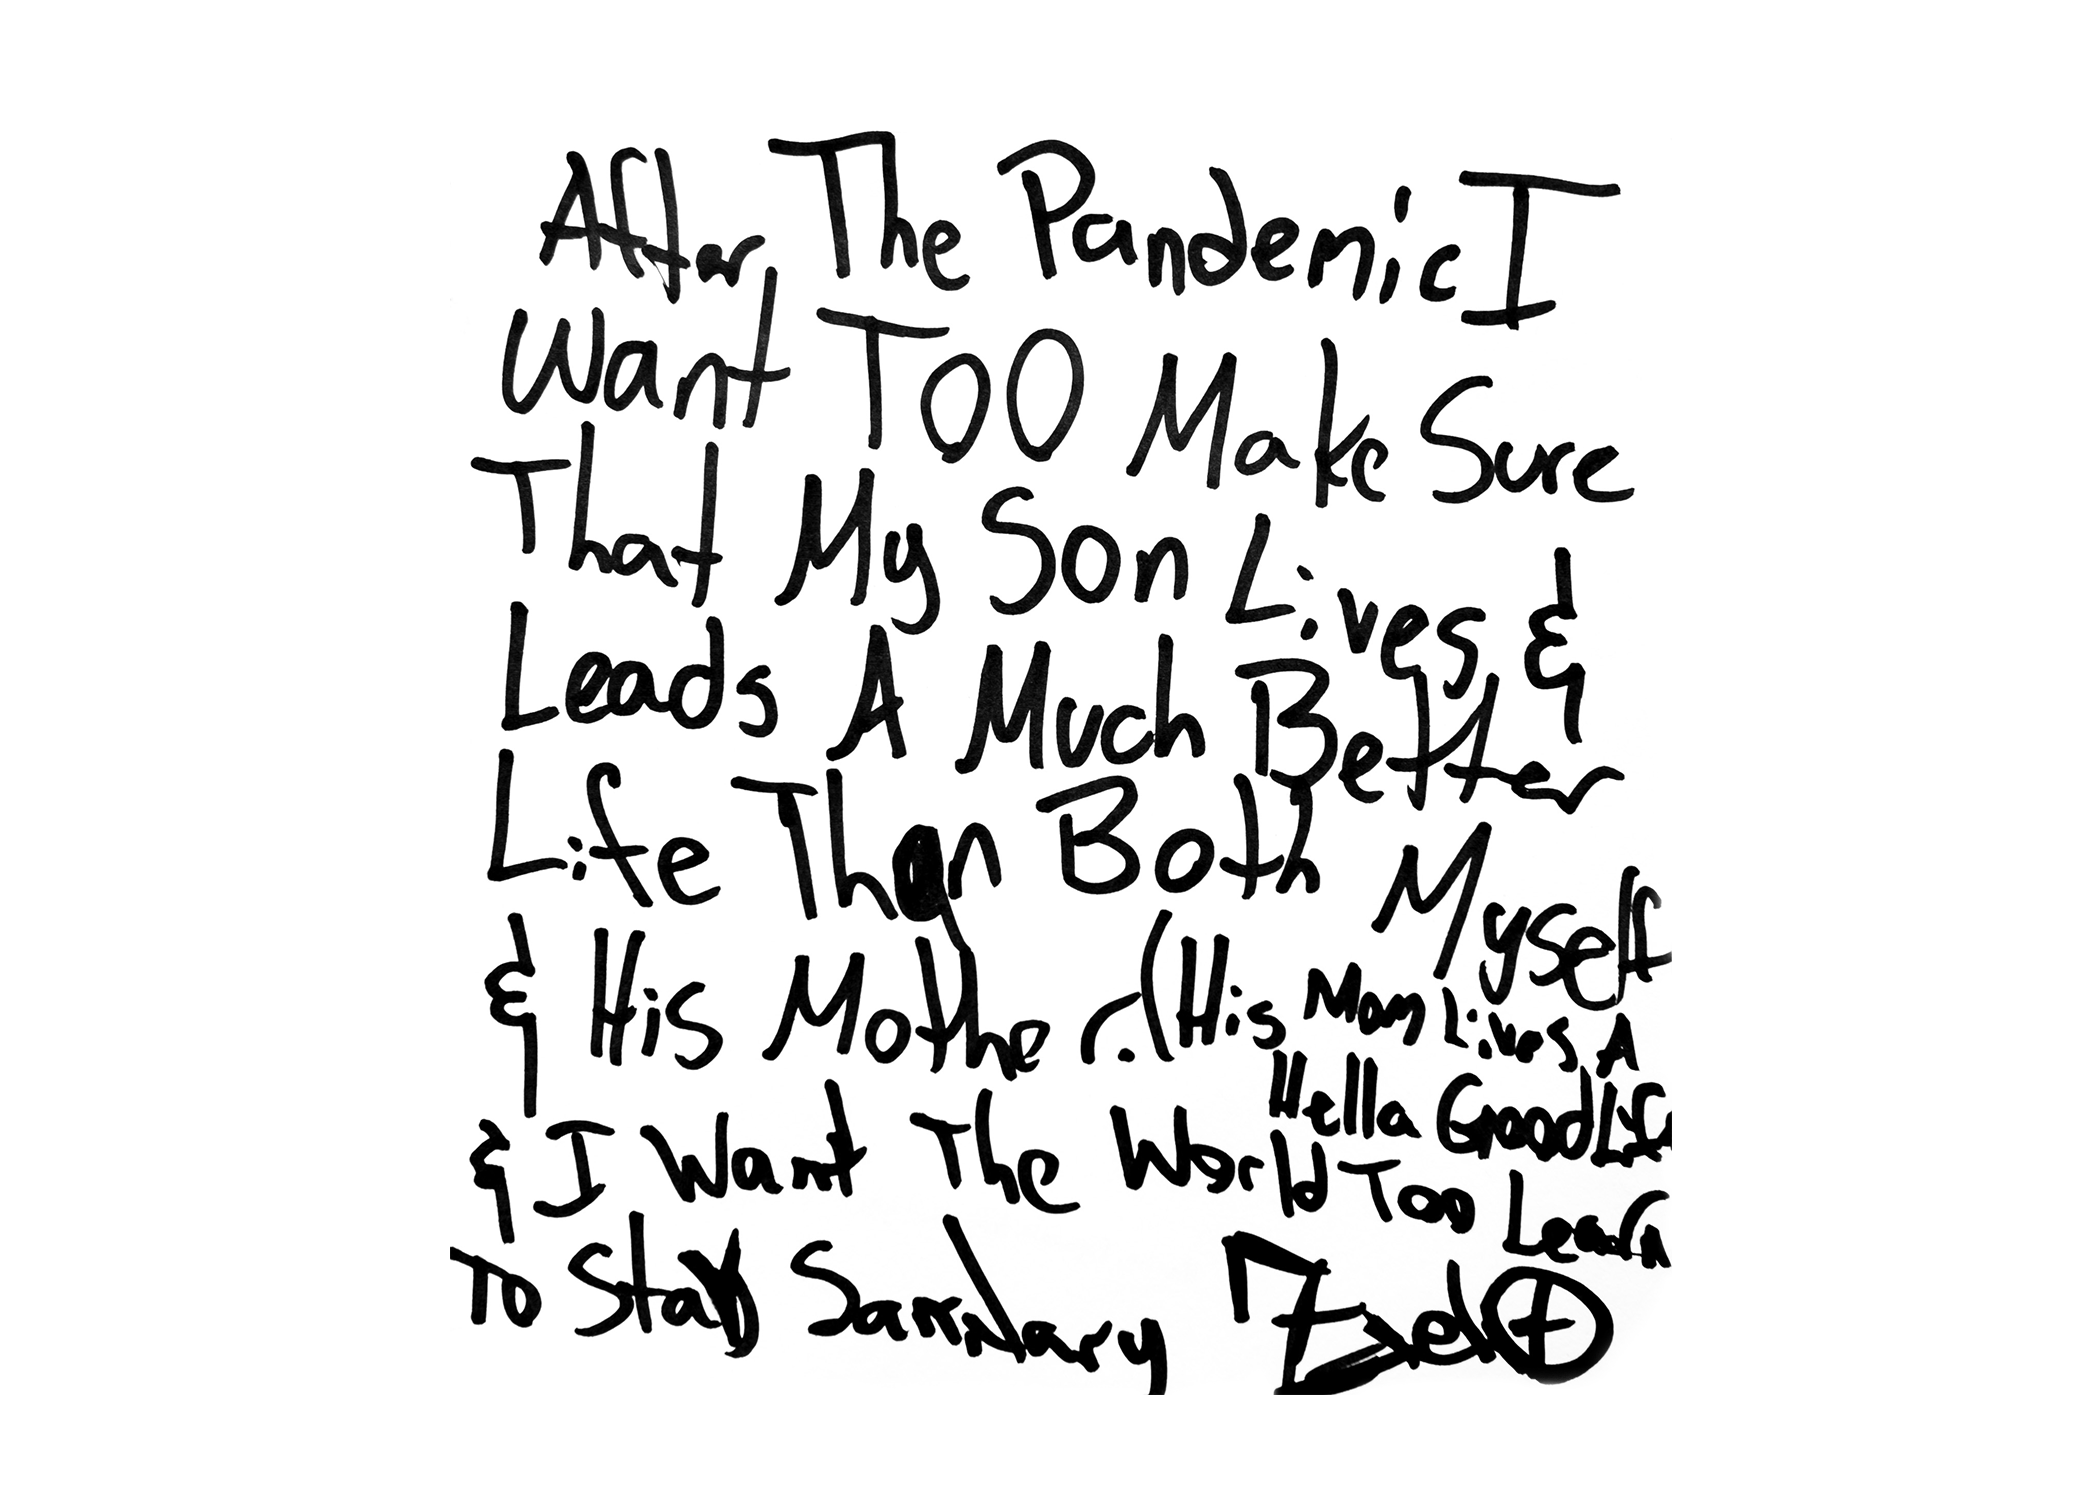 After The Pandemic I
Want TOO Make Sure
That My Son Lives &
Leads A Much Better
Life Than Both Myself
& His Mother. (His Mom Lives A
Hella Good Life
& I Want The World Too Learn
To Stay